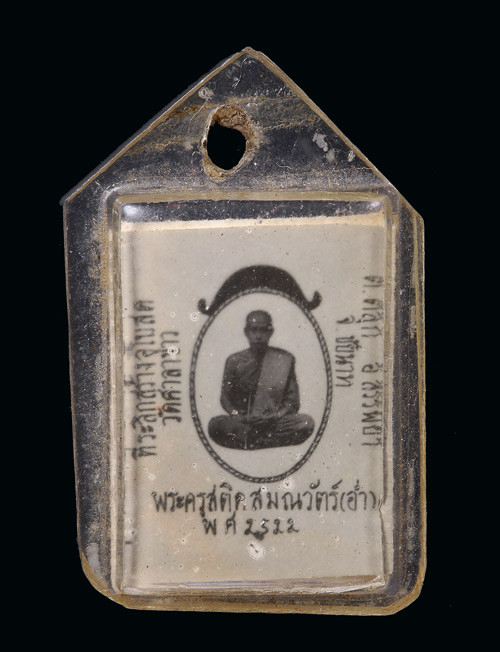 ที่ระลึกสร้างอุโบสถ
วัดศาลาขาว
พระครูสถิตสมณวัตร์(อ่ำ)
พศ ๒๕๒๒
จ ชัยนาท
ต. ตลุก อ สรรพยา